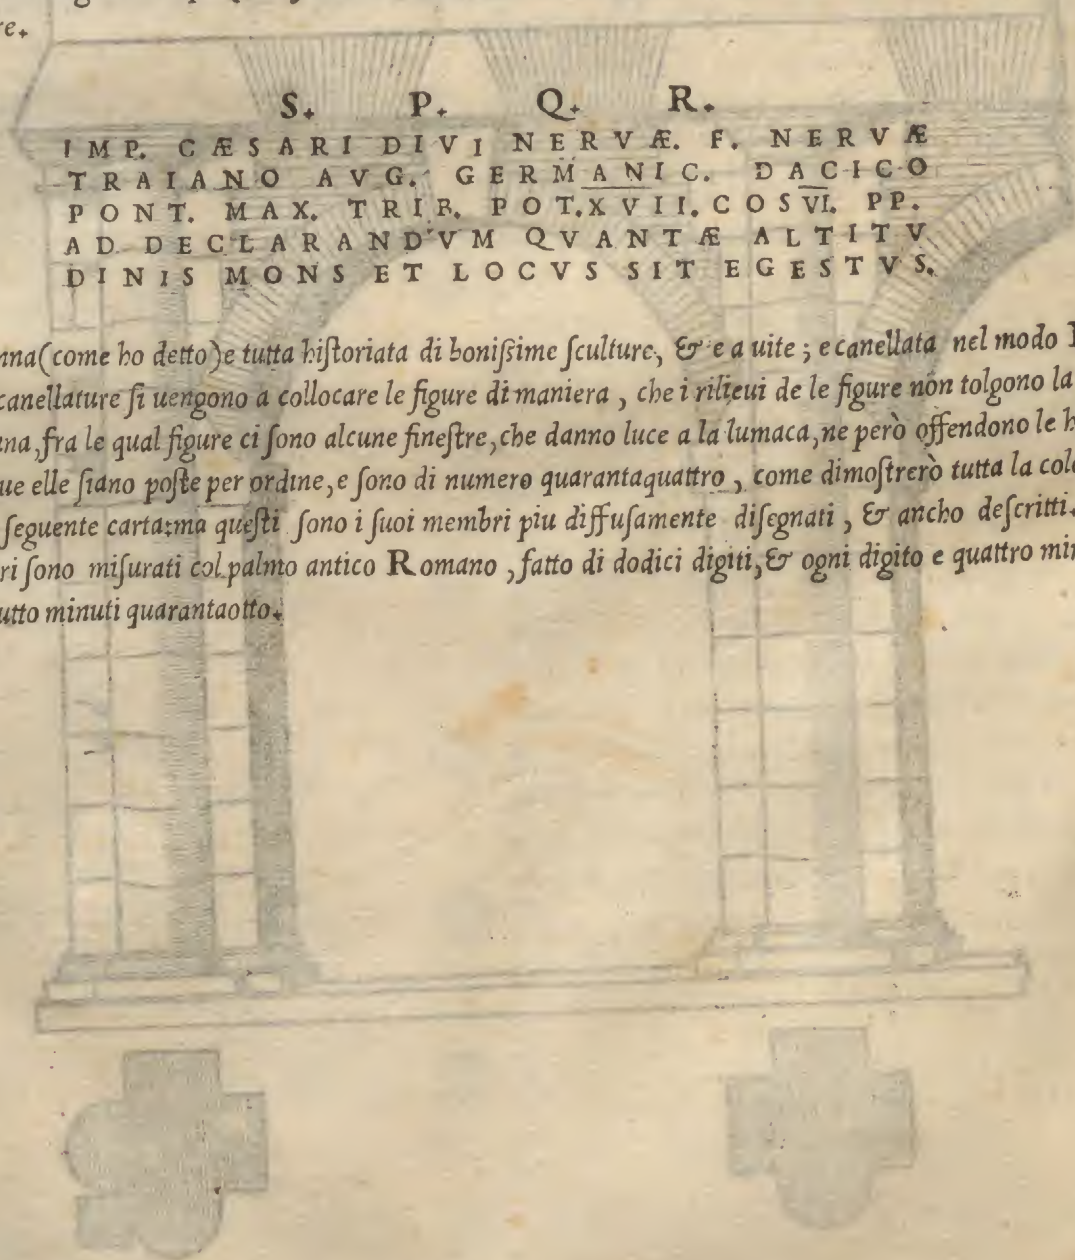 re.
S. P. Q. R.
IMP. CÆSARI DIVI NERVÆ. F. NERVÆ
TRAIANO AVG. GERMANIC. DACICO
PONT. MAX. TRIB. POT. XVII. COS VI. PP.
AD DECLARANDVM QVANTÆ ALTITV
DINIS MONS ET LOCVS SIT EGESTVS.
nna (come ho detto) e tutta hiſtoriata di boniſsime ſculture, & e a uite; e canellata nel modo
canellature ſi uengono a collocare le figure di maniera, che i rilieui de le figure non tolgono la
na, fra le qual figure ci ſono alcune fineſtre, che danno luce a la lumaca, ne però offendono le
ue elle ſiano poſte per ordine, e ſono di numero quarantaquattro, come dimoſtrerò tutta la col
ſeguente carta: ma queſti ſono i ſuoi membri piu diffuſamente diſegnati, & ancho deſcritti.
ri ſono miſurati col palmo antico Romano, fatto di dodici digiti, & ogni digito e quattro mi
utto minuti quarantaotto.